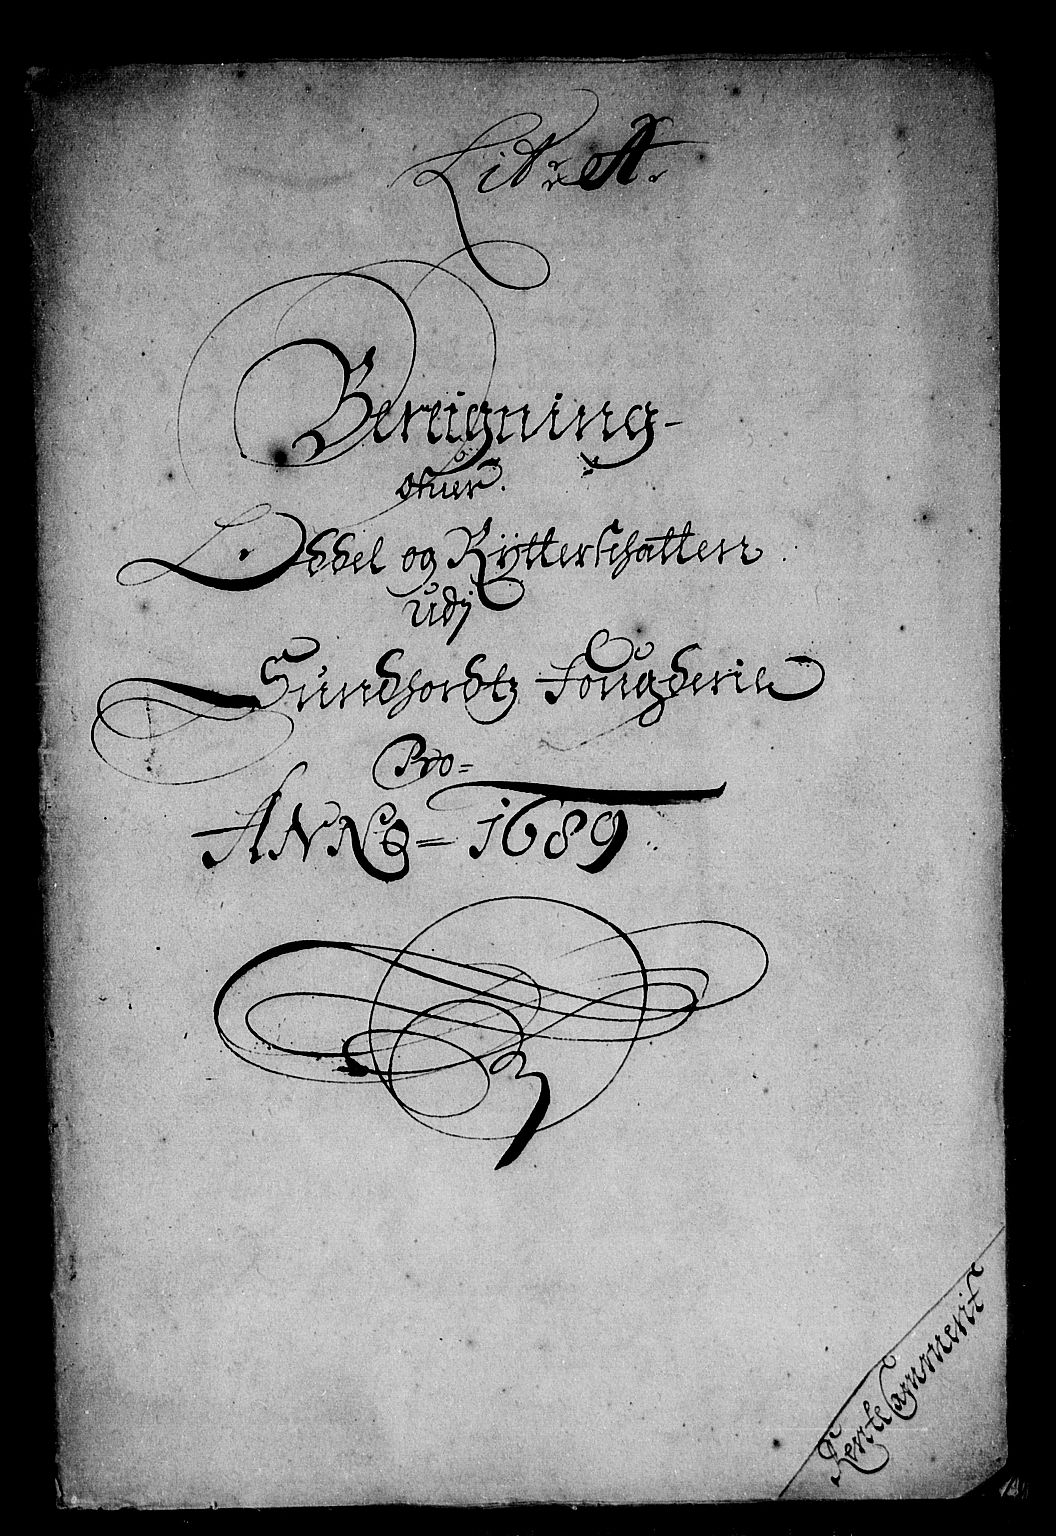 Lit: A.
Bereigning-
ofuer.
Oddel og Rÿtterschatten
Udj
Sundhordtz Fougderie
Pro=
ANNO = 1689.
RenteCammerit